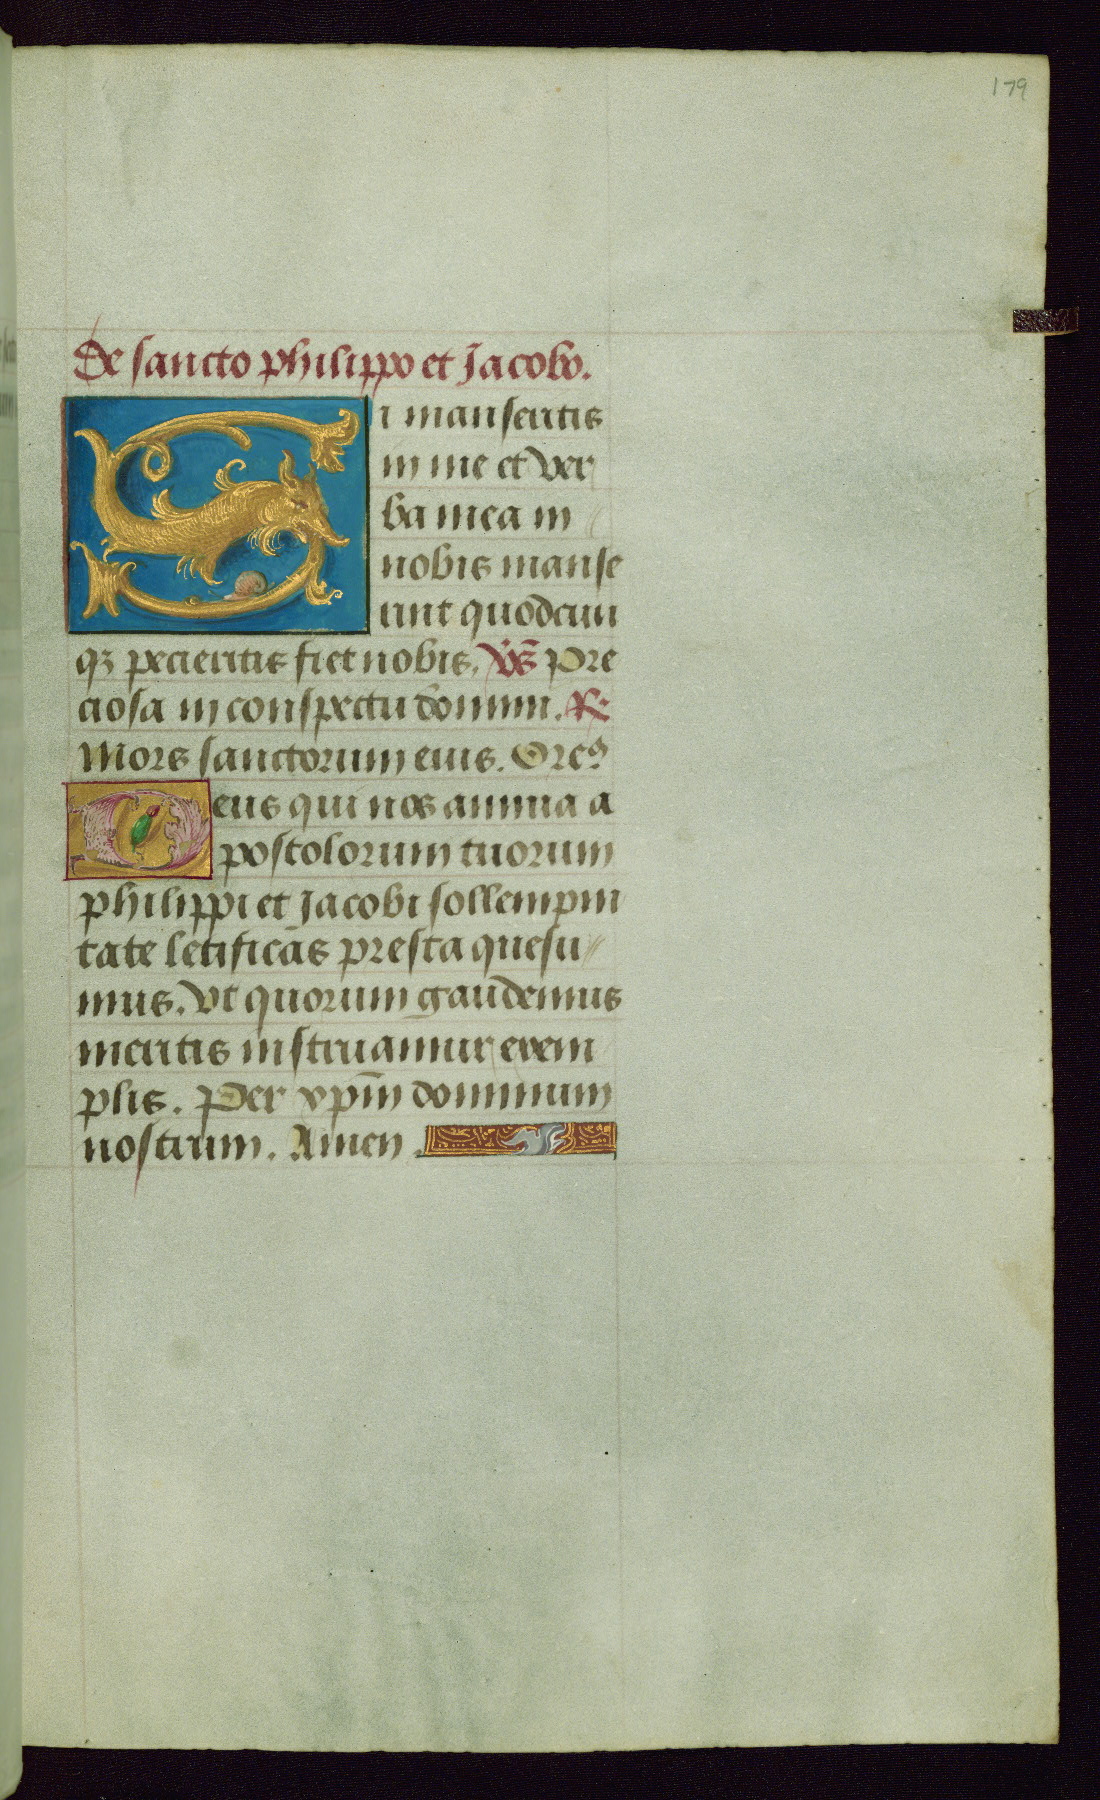 179
De sancto philippo et Jacobo.
Si manseritis
in me et ver
ba mea in
vobis manse
rint quodcun
qꝫ pecieritis fiet vobis. v̄s Pre
ciosa in conspectu domini. R
Mors sanctorum eius. Oreꝰ
Deus qui nos annua a
postolorum tuorum
philippi et Jacobi sollempni
tate letificas presta quesu
mus. Vt quorum gaudemus
meritis instruamur exem
plis. Per xp̄m dominum
nostrum. Amen.